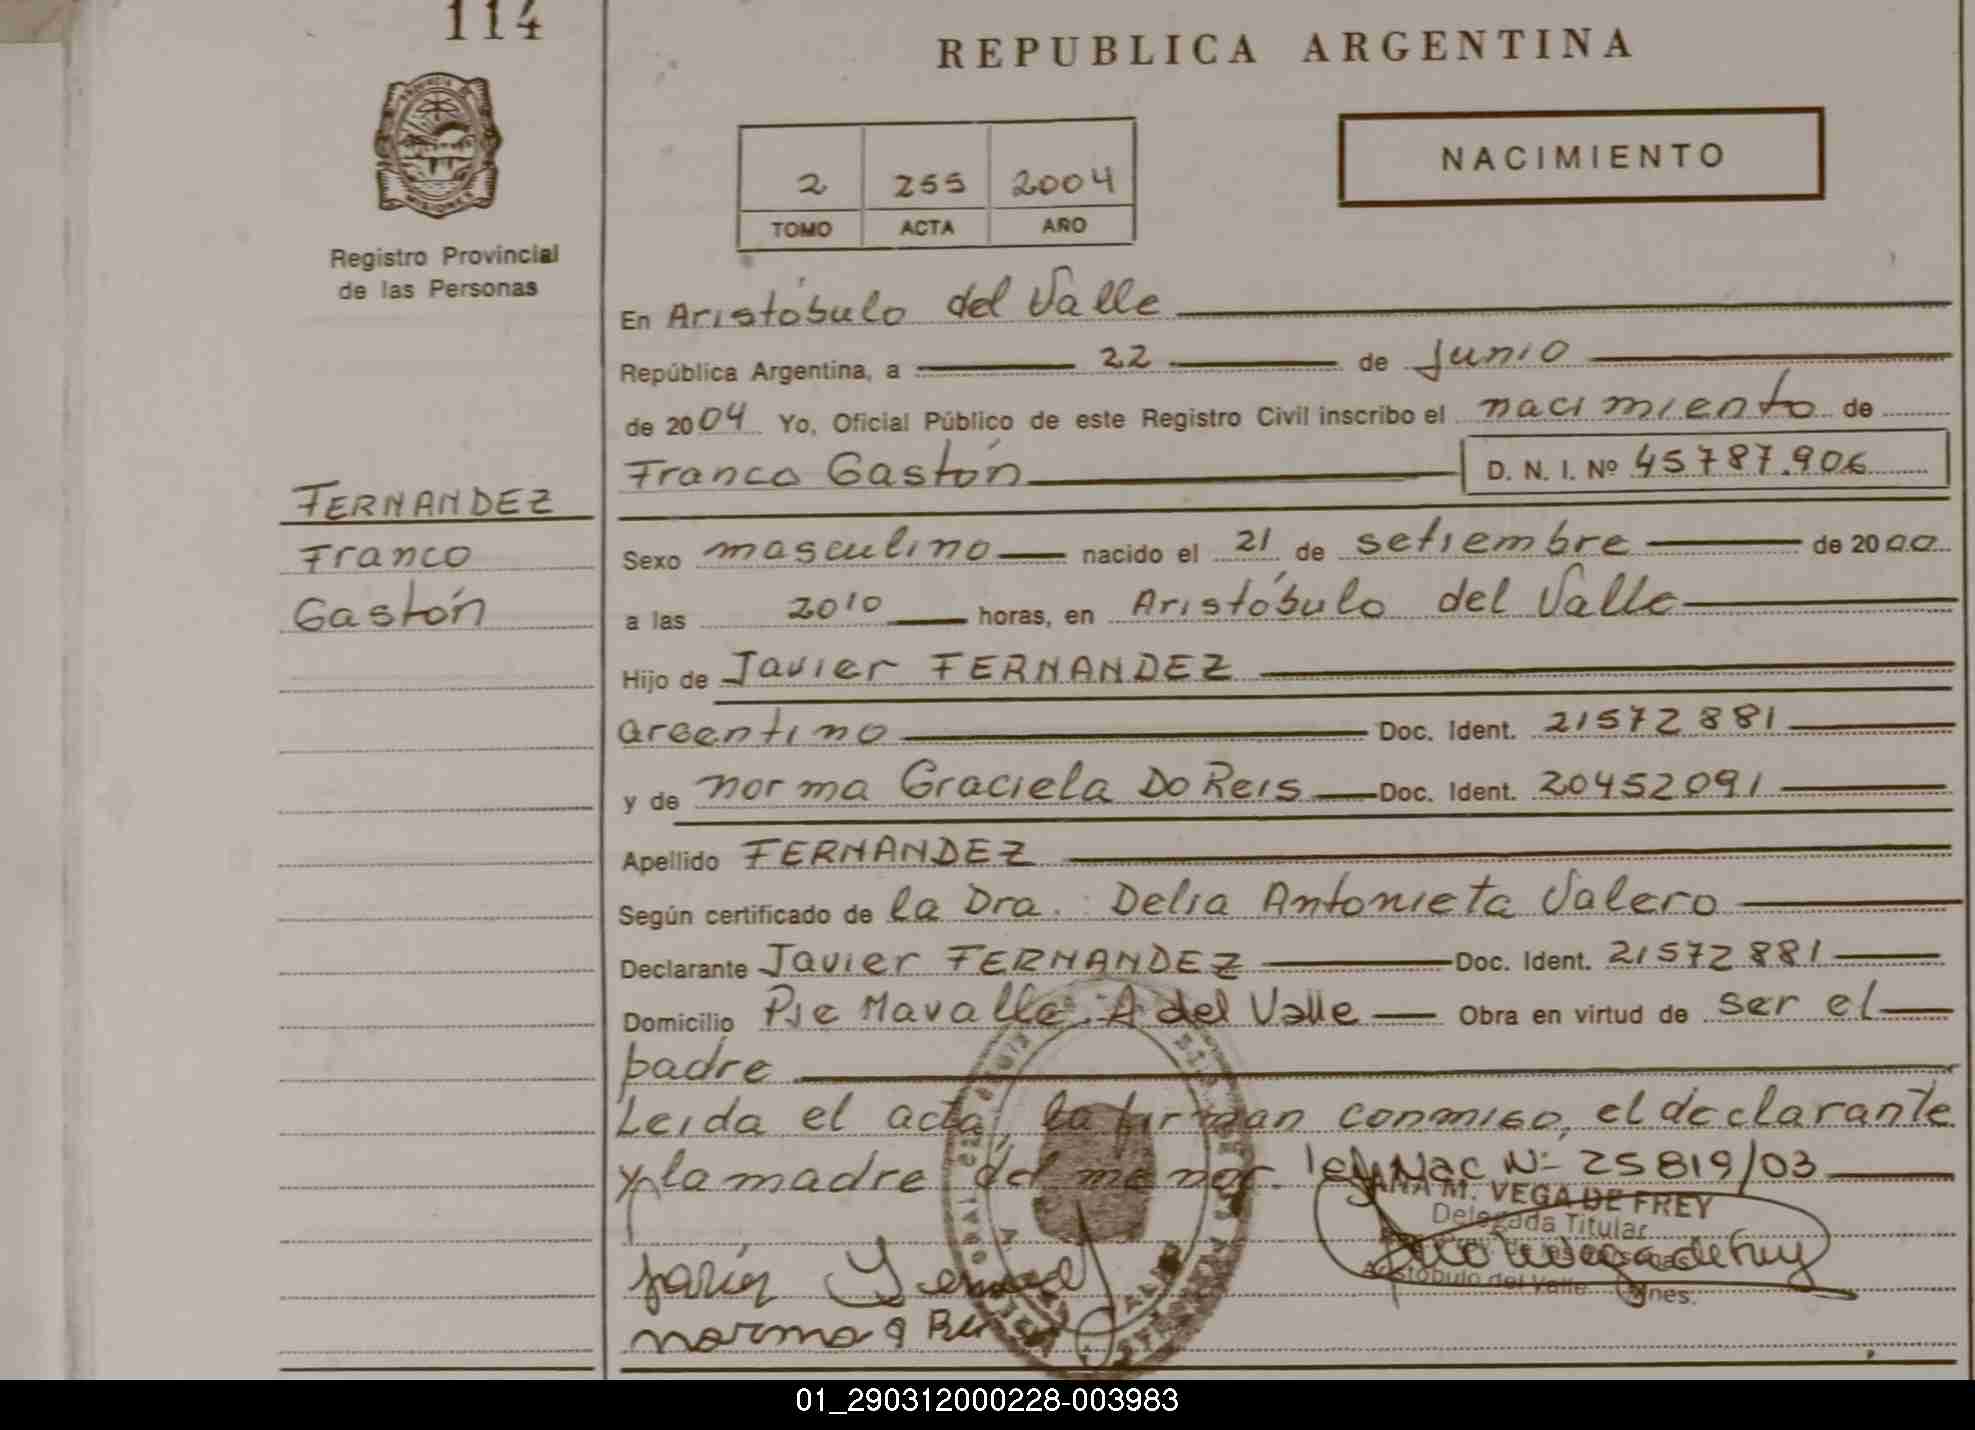 114
REPUBLICA ARGENTINA
NACIMIENTO
2 255 2004
TOMO ACTA AÑO
Registro Provincial
de las Personas
FERNANDEZ
Franco
Gastón
En Aristóbulo del Valle
República Argentina, a 22 de Junio
de 2004 Yo, Oficial Público de este Registro Civil inscribo el nacimiento de
Franco Gastón D. N. I. Nº 45787.906
Sexo masculino nacido el 21 de setiembre de 2000
a las 2010 horas, en Aristóbulo del Valle
Hijo de Javier FERNANDEZ
argentino Doc. Ident. 21572881
y de norma Graciela Do Reis Doc. Ident. 20452091
Apellido FERNANDEZ
Según certificado de la Dra. Delia Antonieta Valero
Declarante Javier FERNANDEZ Doc. Ident. 21572881
Domicilio Pje Mavalle. A del Valle Obra en virtud de ser el
padre
Leida el acta, la firman conmigo, el declarante
y la madre del menor. Ley Nac Nº 25819/03
ANA M. VEGA DE FREY
Delegada Titular
Aristóbulo del Valle Mnes.
norma
01_290312000228-003983